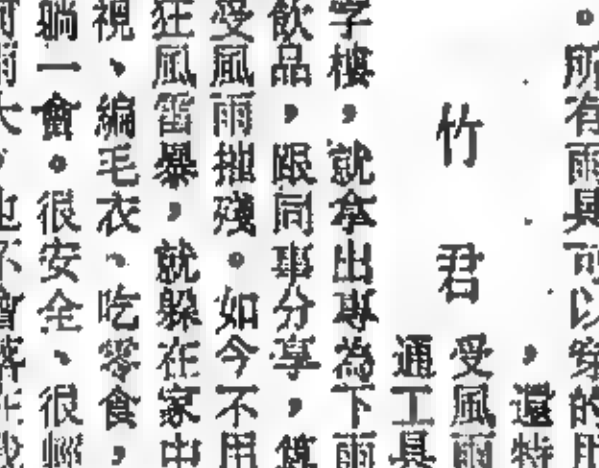 。所有雨具可以穿的用
，還特
竹君
受風雨
通工具
字樓，就拿出專為下雨
飲品，跟同事分享，算
受風雨摧殘。如今不用
狂風雷暴，就躲在家中
視、編毛衣、吃零食，
躺一會。很安全、很輕